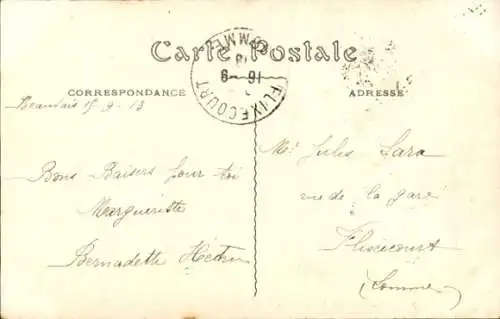 Carte Postale
CORRESPONDANCE
ADRESSE
FLIXECOURT
SOMME
16-9
13
Beauvais 15 9 - 13
Bons Baisers pour toi
Margueritte
Bernadette Hector
Mr Jules Lara
rue de la gare
Flixecourt
(Somme)